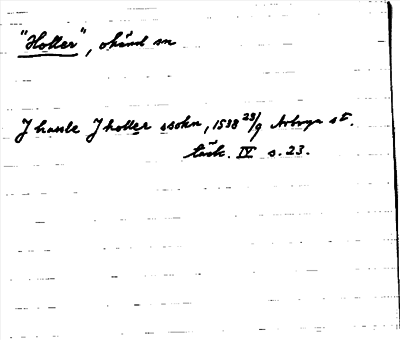 "Holler", okänd sn
J hassle J holler ssokn, 1538 23/9 Arboga st.
tänk. IV s. 23.